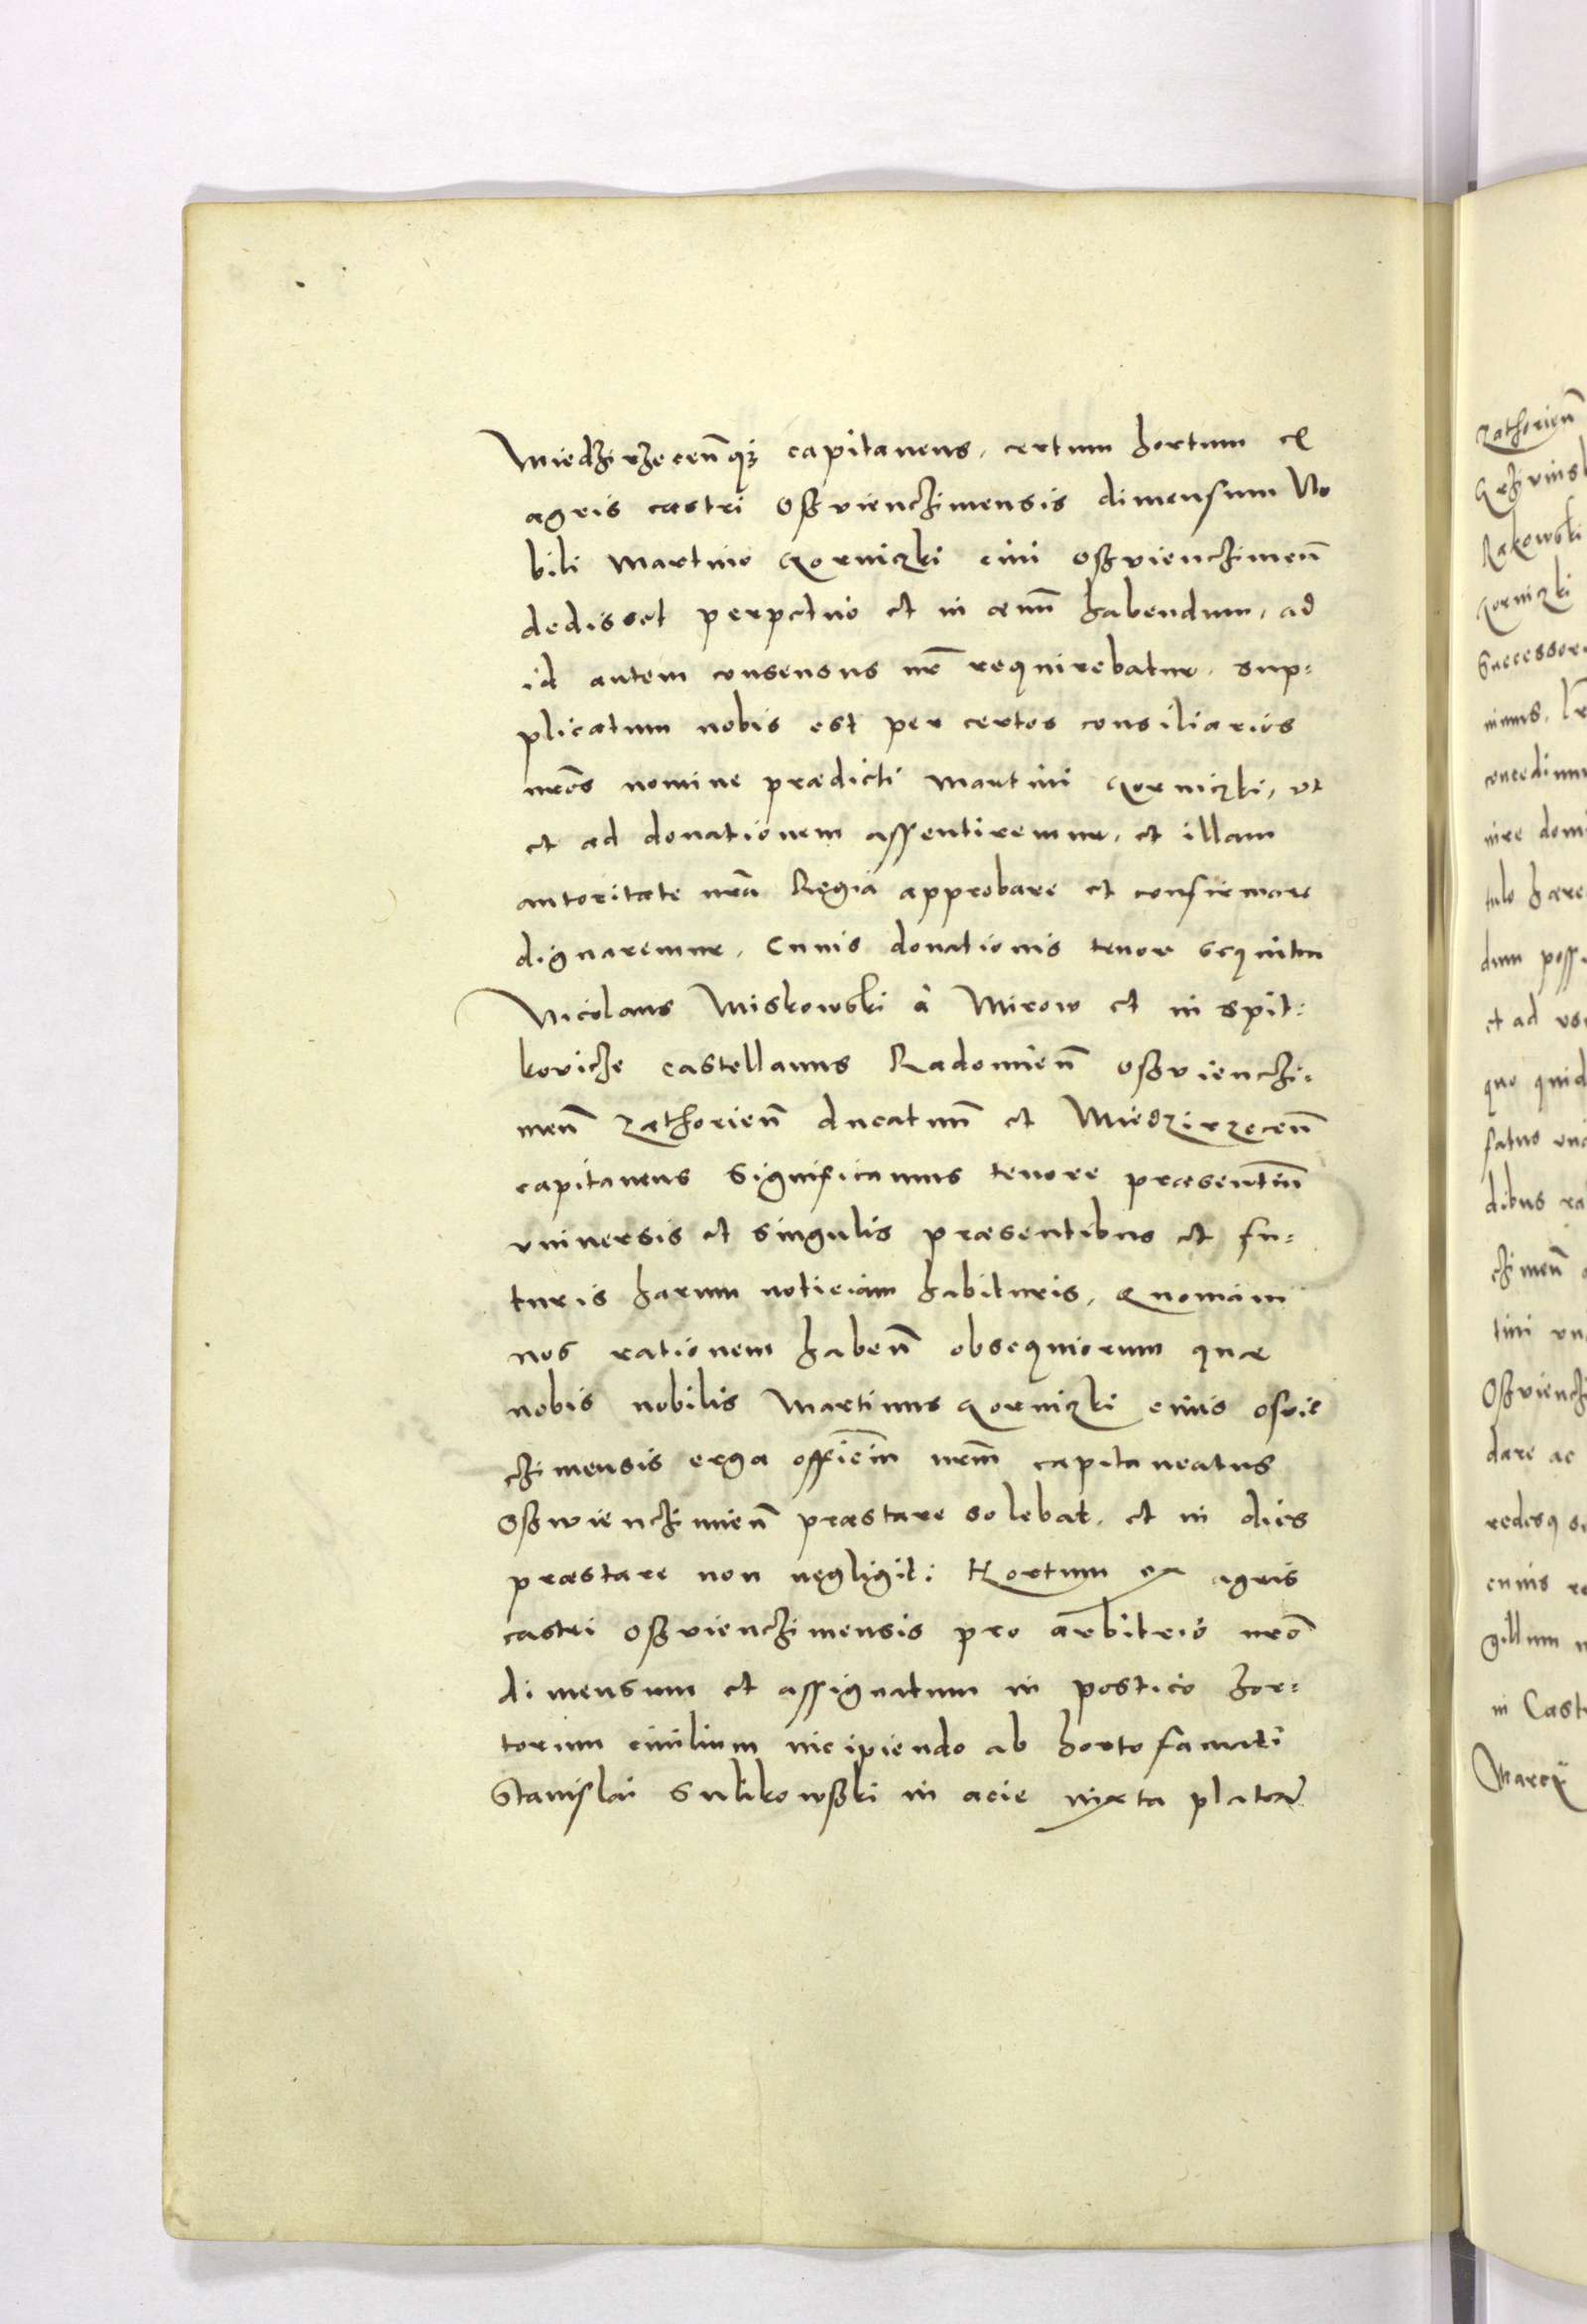 Miedzirzecen̄q₃ capitaneus, certum hortum ex
agris castri Oßvienczimensis dimensum No
bili Martino Korniczki ciui Oßvienczimen̄
dedisset perpetuo et in aeuū habendum, ad
id autem consensus nr̄ requirebatur. sup=
plicatum nobis est per certos consiliarios
nrōs nomine praedicti Martini Korniczki, ut
et ad donationem assentiremur, et illam
autoritate nrā Regia approbare et confirmare
dignaremur. Cuius donationis tenor sequitur
Nicolaus Miskowski à Mirow et in Spit=
kovicze castellanus Radomien̄ Oßvienczi=
men̄ Zathorien̄ ducatuū et Miedzirzecen̄
capitaneus Significamus tenore praesentiū
vniuersis et singulis praesentibus et fu=
turis harum noticiam habituris, Quoniam
nos rationem haben̄ obsequiorum quae
nobis nobilis Martinus Korniczki ciuis osvie
czimensis erga officiū nrm̄ capitaneatus
Oßwienczimien̄ praestare solebat, et in dies
praestare non negligit: Hortum ex agris
castri Oßvienczimensis pro arbitrio nrō
dimensum et assignatum in postico hor=
torum ciuilium incipiendo ab horto famati
Stanislai Sulikowßki in acie iuxta plateā
Zathorien̄
Rakowski
Korniczki
Successor
nimus.
concedimu
nire dom
tulo haere
dum poss
et ad us
quo quid
dibus ra
czimen̄
tini
Oßviencz
dare ac
redesq se
cuius re
gillum n
in Cast